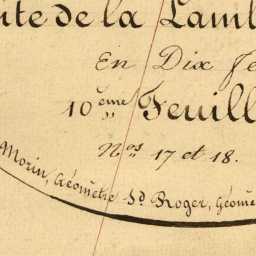 ite de la Lam
En Dix Fe
10ème Feuill
Nos 17 et 18.
Morin, Géomètre Sd Roger, Géomè